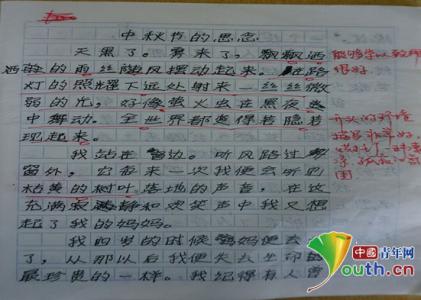 中秋节的思念
天黑了。雾来了,飘飘洒
洒的雨丝随风摆动起来。在路
灯的照耀下远处射来一丝丝微
弱的光,好像萤火虫在黑夜
中舞动。全世界都变得若隐若
现起来。
我站在窗边。听风路过
窗外,它每来一次我便会听见
枯黄的树叶落地的声音,在这
充满寂静和欢笑声中我又想
起了我的妈妈。
我四岁的时候妈妈便去
了,从那以后我便失去生命中
最珍贵的一样。我记得有人曾
能够学以致用
很好。
开头的环境
描写非常好,
中国青年网
Youth.cn